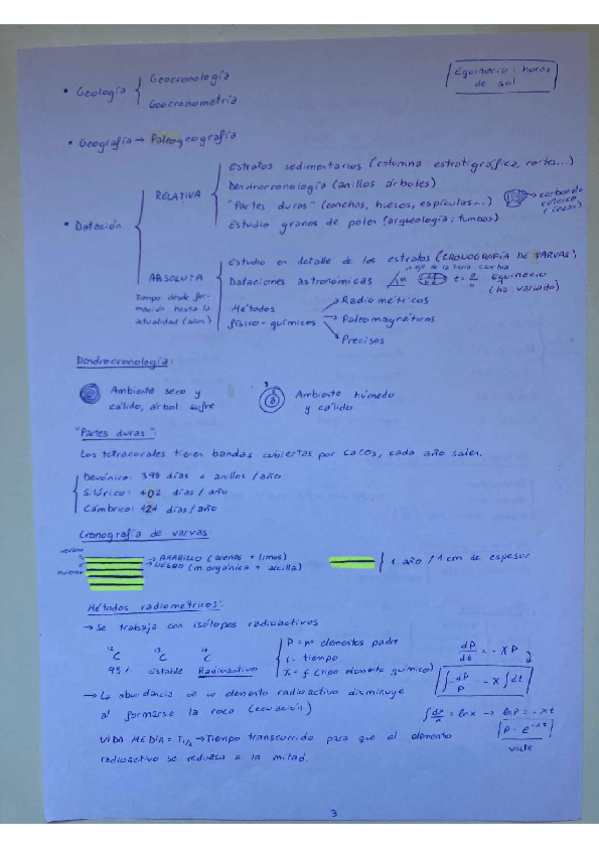 • Geología { Geocronología
Geocronometría
Equinocio: horas de sol
• Geografía → Paleogeografía
• Datación
RELATIVA
Estratos sedimentarios (columna estratigráfica, cortes...)
Dendrocronología (anillos árboles)
"Partes duras" (conchas, huesos, espículas...)
→ carbonato
(líneas)
Estudio granos de polen (arqueología; tumbas)
ABSOLUTA
Tiempo desde formación hasta la actualidad (años)
Estudio en detalle de los estratos (CRONOGRAFÍA DE VARVAS)
eje de la tierra cambia
Dataciones astronómicas
Equinocio
(ha variado)
Métodos físico-químicos
→ Radiométricos
→ Paleomagnéticos
→ Precisos
Dendrocronología:
Ambiente seco y cálido, árbol sufre
3
Ambiente húmedo y cálido
"Partes duras":
Los tetracorales tienen bandas cubiertas por CaCO3, cada año salen.
Devónico: 395 días o anillos/año
Silúrico: 402 días/año
Cámbrico: 424 días/año
Cronografía de varvas:
verano
→ AMARILLO (arenas + limos)
invierno
→ NEGRO (m orgánica + arcilla)
1 año / 1 cm de espesor
Métodos radiométricos:
→ Se trabaja con isótopos radioactivos
12C 13C 14C
95% Estable Radioactivo
P = nº elementos padre
t = tiempo
λ = f (tipo elemento químico)
dP/dt = -λP
∫dP/P = -λ∫dt
→ La abundancia de un elemento radioactivo disminuye al formarse la roca (ecuación)
∫dx/x = lnx → lnP = -λt
P = e^-λt
VIDA MEDIA = T1/2 → Tiempo transcurrido para que el elemento
radioactivo se reduzca a la mitad.
3